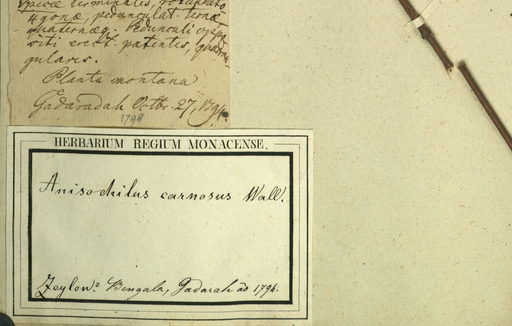 Spicæ terminales,
4gonæ, pedunculat. ternæ
quaternæq. Pedunculi oppo
siti erect. patentes, quadran
gulares.
Planta montana
Gadaradah Octbr. 27, 1794.
1798
HERBARIUM REGIUM MONACENSE.
Anisochilus carnosus Wall.
Zeylon. Bengala, Gadarah ao 1794.